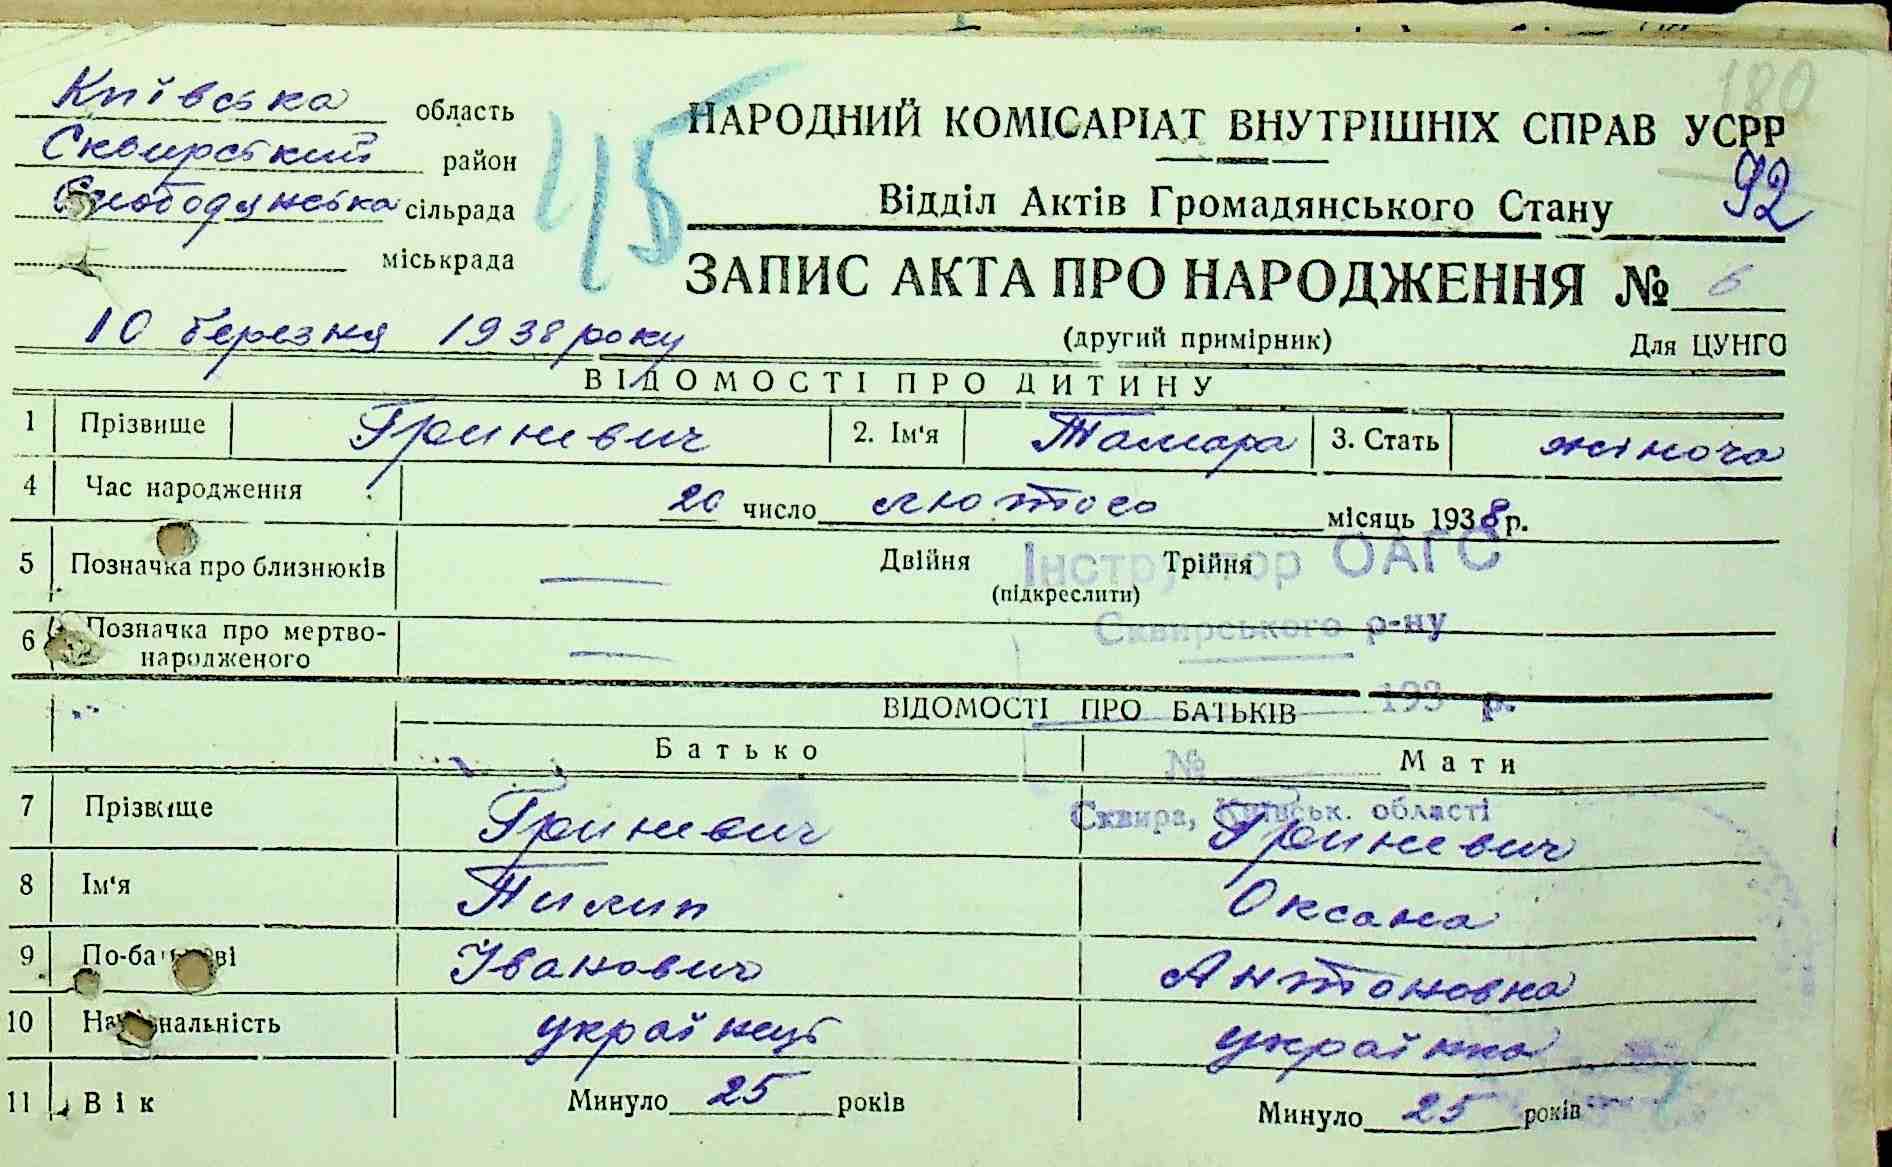 Київська область
Сквирський район
Слободянська сільрада
міськрада
45
180
НАРОДНИЙ КОМІСАРІАТ ВНУТРІШНІХ СПРАВ УСРР
92
Відділ Актів Громадянського Стану
ЗАПИС АКТА ПРО НАРОДЖЕННЯ № 6
10 березня 1938 року
(другий примірник) Для ЦУНГО
ВІДОМОСТІ ПРО ДИТИНУ
1 Прізвище Гриневич 2. Ім'я Тамара 3. Стать жіноча
4 Час народження 20 число лютого місяць 1938 р.
5 Позначка про близнюків — Двійня Трійня
(підкреслити)
Інструктор ОАГС
Сквирського р-ну
6 Позначка про мертво-
народженого —
193 р.
ВІДОМОСТІ ПРО БАТЬКІВ
Батько Мати
№
Сквира, Київськ. області
7 Прізвище Гриневич Гриневич
8 Ім'я Пилип Оксана
9 По-батькові Іванович Антоновна
10 Національність українець українка
11 Вік Минуло 25 років Минуло 25 років